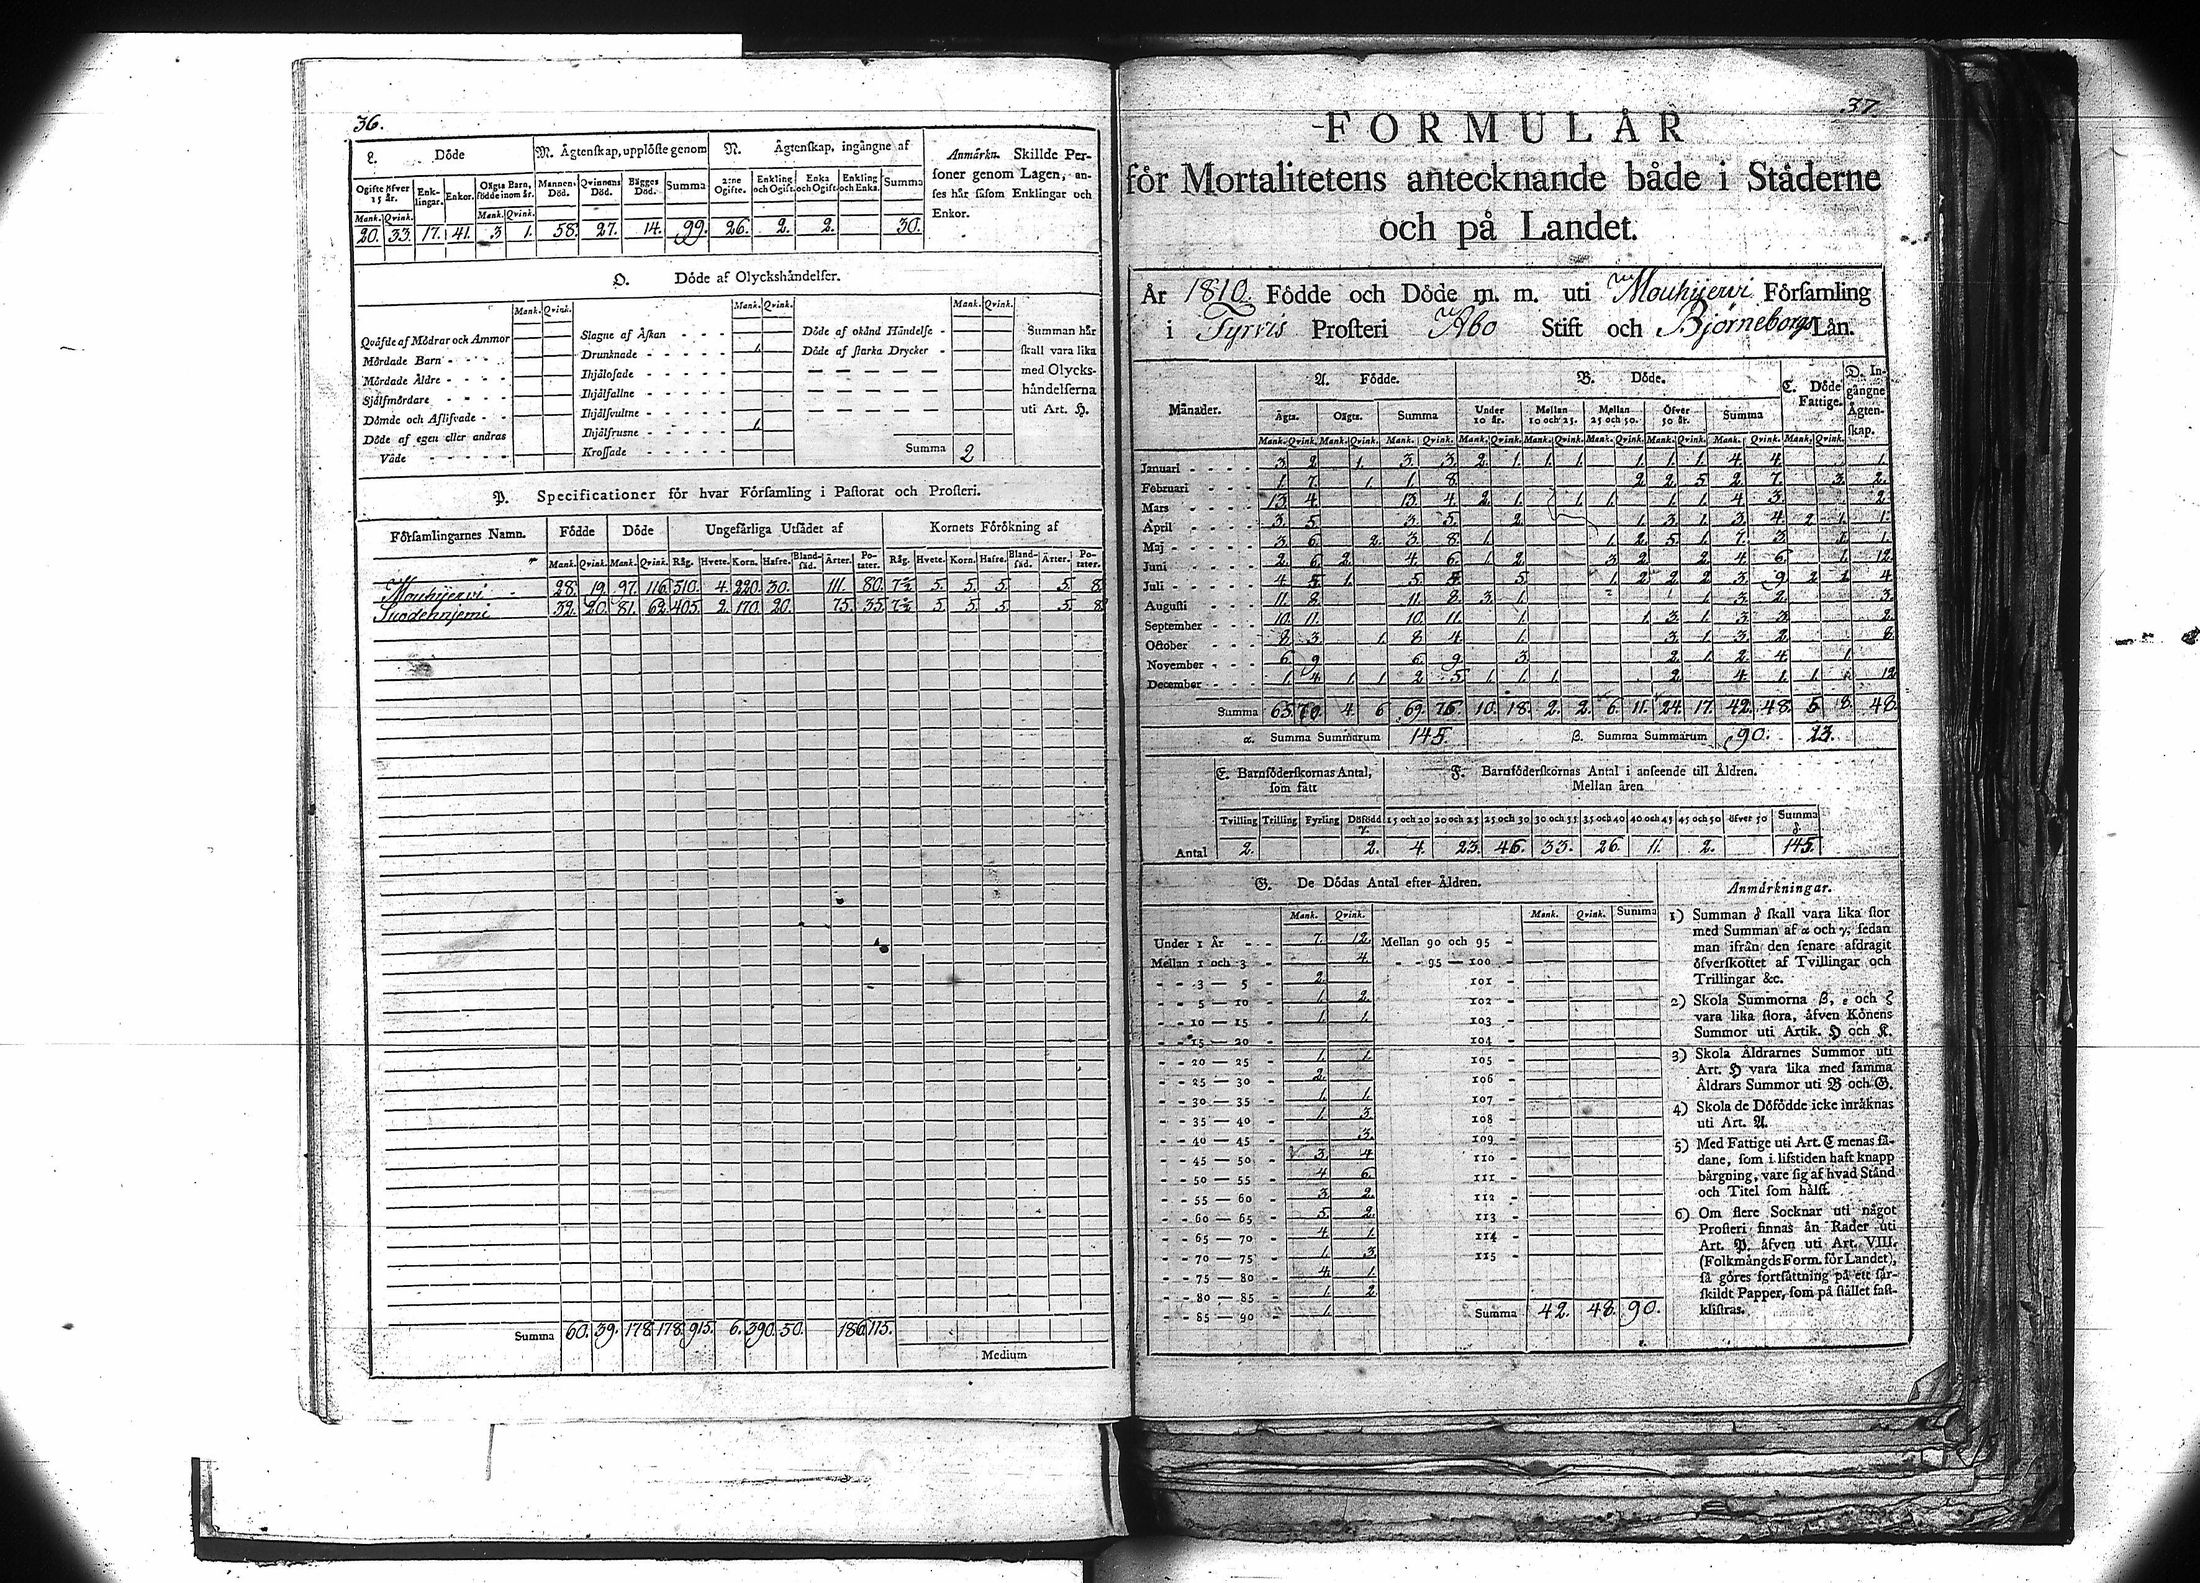 36.
L. Döde
M. Ägtenskap, upplöste genom
N. Ägtenskap, ingångne af
Ogifte öfver 15 år. Enklingar. Enkor. Oägta Barn, födde inom år. Mannens Död. Qvinnans Död. Bägges Död. Summa 2:ne Ogifte. Enkling och Ogift. Enka och Ogift. Enkling och Enka. Summa
Mank. Qvink. Mank. Qvink.
20. 33. 17. 41. 3 1. 58. 27. 14. 99. 26. 2. 2. 30.
Anmärkn. Skillde Per-
soner genom Lagen, an-
ses här såsom Enklingar och
Enkor.
O. Döde af Olyckshändelser.
Mank. Qvink. Mank. Qvink. Mank. Qvink.
Qväfde af Mödrar och Ammor
Mördade Barn
Mördade Äldre
Sjelfmördare
Dömde och Aflifvade
Döde af egen eller andras
Våde
Slagne af Åskan
Drunknade 1.
Ihjälosade
Ihjälfallne
Ihjälsvultne
Ihjälfrusne 1.
Krossade
Döde af okänd Händelse
Döde af starka Drycker
Summa 2
Summan här
skall vara lika
med Olycks-
händelserna
uti Art. H.
P. Specificationer för hvar Församling i Pastorat och Prosteri.
Församlingarnes Namn. Födde Döde Ungefärliga Utsädet af Kornets Förökning af
Mank. Qvink. Mank. Qvink. Råg. Hvete. Korn. Hafre. Blandsäd. Ärter. Potater. Råg. Hvete. Korn. Hafre. Blandsäd. Ärter. Potater.
Mouhijervi 28. 19. 97. 116. 510. 4. 220. 30. 111. 80. 7½ 5. 5. 5. 5. 8
Suodenniemi 32. 20. 81. 62. 405. 2. 170. 20. 75. 35. 7½ 5. 5. 5. 5. 8
Summa 60. 39. 178. 178. 915. 6. 390. 50. 186. 115.
Medium
37.
FORMULÄR
för Mortalitetens antecknande både i Städerne
och på Landet.
År 1810. Födde och Döde m. m. uti Mouhijervi Församling
i Tyrvis Prosteri Åbo Stift och Björneborgs Län.
Månader. A. Födde. B. Döde. C. Döde Fattige. D. Ingångne Ägtenskap.
Ägta. Oägta. Summa Under 10 år. Mellan 10 och 25. Mellan 25 och 50. Öfver 50 år. Summa
Mank. Qvink. Mank. Qvink. Mank. Qvink. Mank. Qvink. Mank. Qvink. Mank. Qvink. Mank. Qvink. Mank. Qvink. Mank. Qvink.
Januari 3. 2. 1. 3. 3. 2. 1. 1. 1. 1. 1. 1. 4. 4. 1.
Februari 1. 7. 1. 1. 8 2 2. 5 2. 7. 3. 2.
Mars 13. 4. 13. 4. 2. 1. 1. 1. 1. 1. 4. 3. 2.
April 3. 5. 3. 5. 2. 1. 3. 1. 3. 4. 2 1. 1.
Maj 3. 6. 2. 3. 8. 1. 1. 2. 5. 1. 7. 3. 1. 1.
Juni 2. 6. 2. 4. 6. 1. 2. 3. 2. 2. 4. 6. 1. 12.
Juli 4. 5. 1. 5. 5. 5. 1. 2. 2. 2. 3. 9. 2. 1. 4.
Augusti 11. 8. 11. 8. 3. 1. 1. 3. 2. 3.
September 10. 11. 10. 11. 1. 1. 3. 1. 3. 3. 2.
October 8. 3. 1. 8 4. 1. 3. 1. 3. 2. 8.
November 6. 9. 6. 9. 3. 2. 1. 2. 4. 1.
December 1. 4. 1. 1. 2. 5. 1. 1. 1. 2. 4. 1. 1. 12
Summa 65. 70. 4. 6 69. 76. 10. 18. 2. 2. 6. 11. 24. 17. 42. 48. 5 8. 48.
α. Summa Summarum 145. β. Summa Summarum 90. 23.
E. Barnföderskornas Antal, som fått
F. Barnföderskornas Antal i anseende till Åldren.
Mellan åren
Tvilling Trilling Fyrling Dödfödd γ. 15 och 20 20 och 25 25 och 30 30 och 35 35 och 40 40 och 45 45 och 50 öfver 50 Summa δ
Antal 2. 2. 4. 23. 46. 33. 26. 11. 2. 145.
G. De Dödas Antal efter Åldren.
Mank. Qvink. Mank. Qvink. Summa
Under 1 År 7. 12. Mellan 90 och 95
Mellan 1 och 3 4. 95 — 100
3 — 5 2. 101
5 — 10 1. 2. 102
10 — 15 1. 1. 103
15 — 20 104
20 — 25 1. 1. 105
25 — 30 2. 106
30 — 35 1. 1. 107
35 — 40 1. 3. 108
40 — 45 3. 109
45 — 50 3. 4 110
50 — 55 4 6. 111
55 — 60 3 2. 112
60 — 65 5 2. 113
65 — 70 4. 1. 114
70 — 75 1 3. 115
75 — 80 4. 1.
80 — 85 1. 2
85 — 90 1. Summa 42. 48. 90.
Anmärkningar.
1) Summan δ skall vara lika stor
med Summan af α och γ, sedan
man ifrån den senare afdragit
öfverskottet af Tvillingar och
Trillingar &c.
2) Skola Summorna β, ε och ζ
vara lika stora, äfven Könens
Summor uti Artik. H och K.
3) Skola Åldrarnes Summor uti
Art. H vara lika med samma
Åldrars Summor uti B och G.
4) Skola de Döfödde icke inräknas
uti Art. A.
5) Med Fattige uti Art. C menas så-
dane, som i lifstiden haft knapp
bärgning, vare sig af hvad Stånd
och Titel som hälst.
6) Om flere Socknar uti något
Prosteri finnas än Rader uti
Art. P. äfven uti Art. VIII.
(Folkmängds Form. för Landet),
så göres fortsättning på ett sär-
skildt Papper, som på stället fast-
klistras.